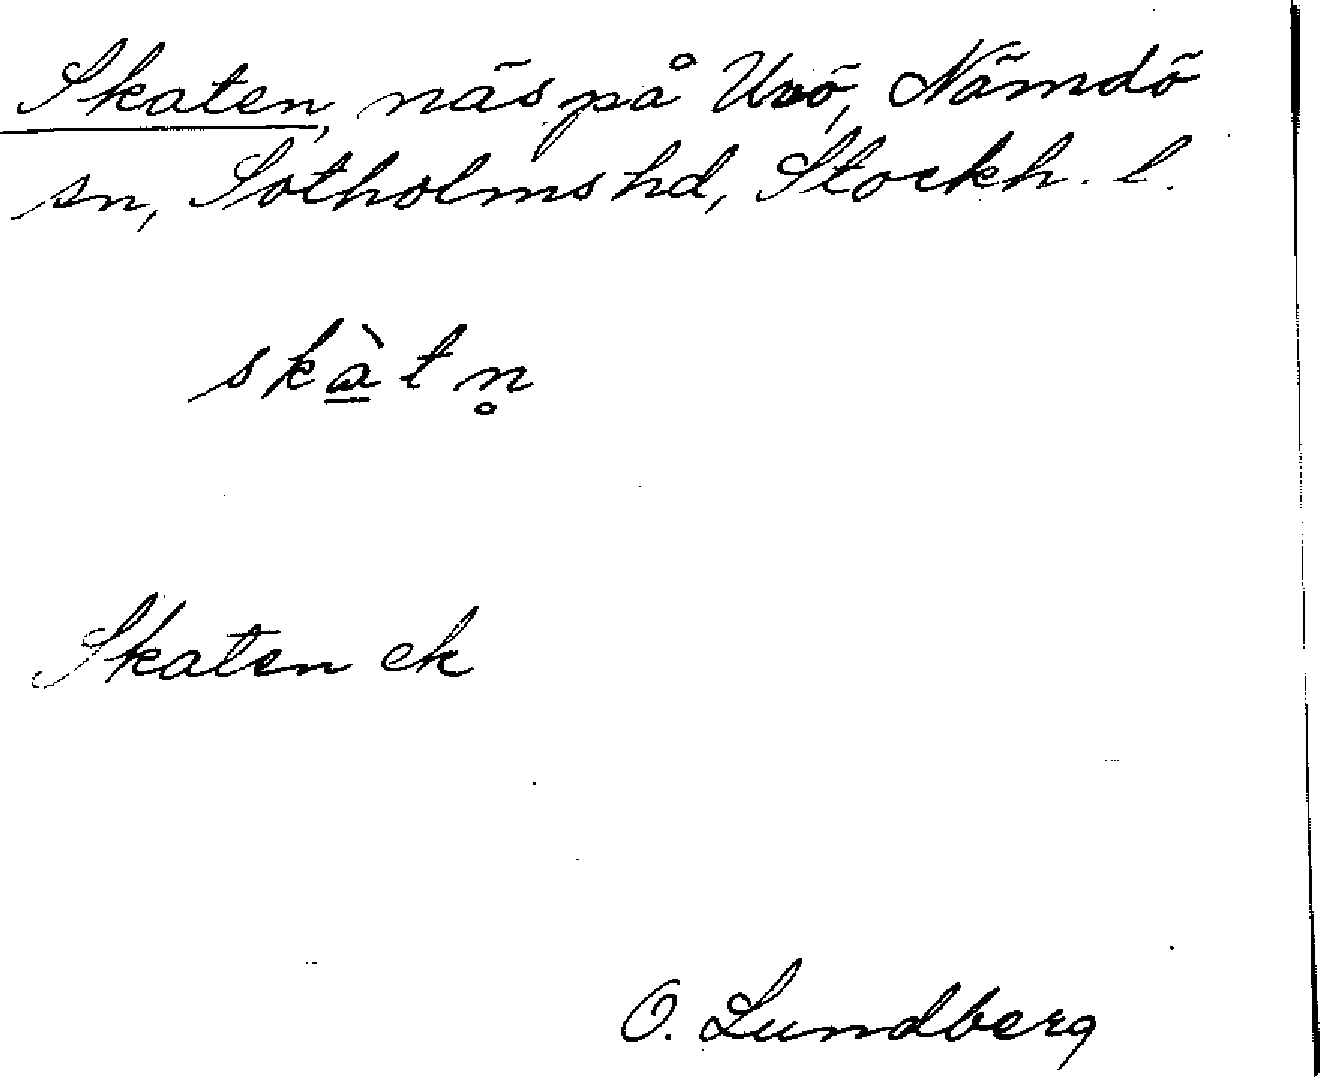 Skaten, näs på Uvö, Nämdö
sn, Sotholms hd, Stockh. l.
skà̲tn̥
Skaten ek
O. Lundberg